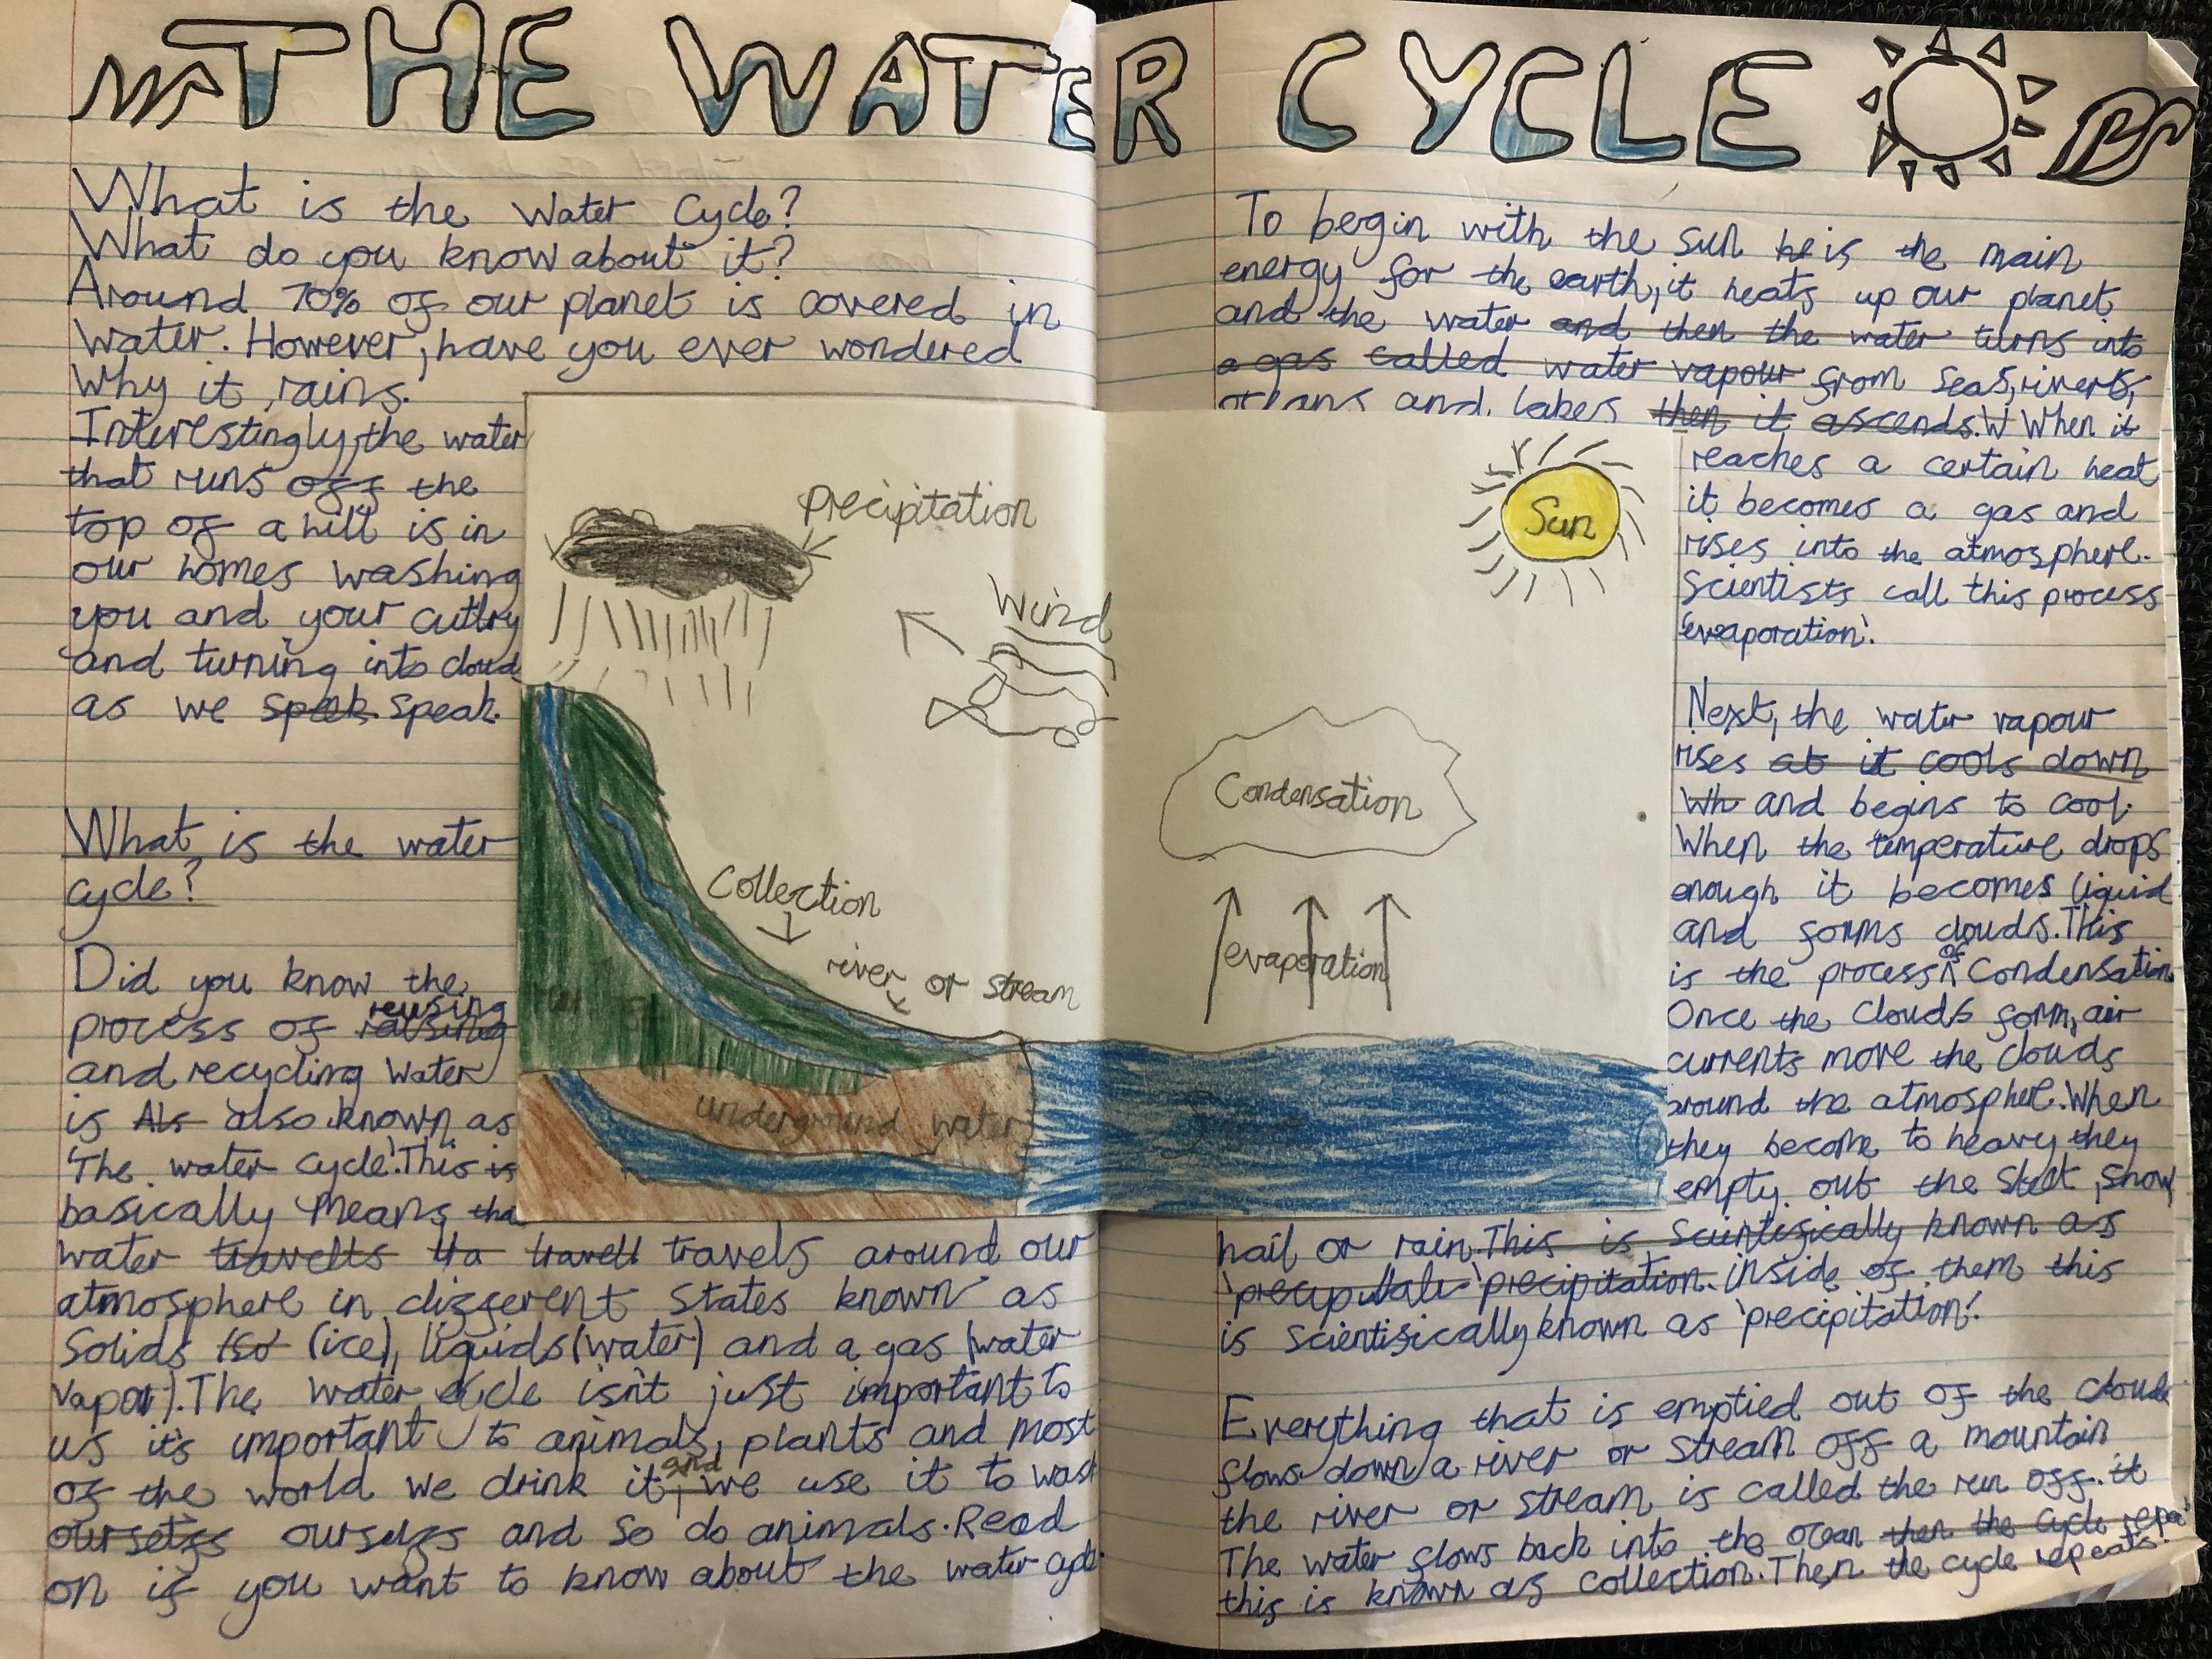 THE WATER CYCLE
What is the Water Cycle?
What do you know about it?
Around 70% of our planet is covered in
Water. However, have you ever wondered
Why it rains.
Interestingly, the water
that runs off the
top of a hill is in
our homes washing
you and your cutlry
and turning into cloud
as we speak. speak.
What is the water
cycle?
Did you know the
reusing
process of
and recycling Water
is Als also known as
'The water cycle'. This is
basically means tha
water travells tha travell travels around our
atmosphere in different States known as
Solids (ice), liquids (water) and a gas (water
vapour). The water cycle isn't just important to
us it's important to animals, plants and most
and
of the world we drink it, we use it to wash
ourselfs ourselfs and so do animals. Read
on if you want to know about the water cycle
To begin with the sun is the main
energy for the earth, it heats up our planet
and the water and then the water turns into
a gas called water vapour from seas, rivers,
oceans and lakes then it ascends. W When it
reaches a certain heat
it becomes a gas and
rises into the atmosphere.
Scientists call this process
'evaporation'.
Next, the water vapour
rises at it cools down
Wh and begins to cool.
When the temperature drops
enough it becomes liquid
and forms clouds. This
of
is the process Condensation
Once the clouds form, air
currents move the clouds
around the atmosphere. When
they become to heavy they
empty out the sleet, snow
hail or rain. This is scientifically known as
'precipitation. inside of them this
is scientifically known as 'precipitation'.
Everything that is emptied out of the clouds
flows down a river or stream off a mountain
the river or stream is called the run off. it
The water flows back into the ocean then the cycle repeat
this is known as collection. Then the cycle repeats.
Precipitation
Sun
Wind
Condensation
Collection
river or stream
evaporation
underground water